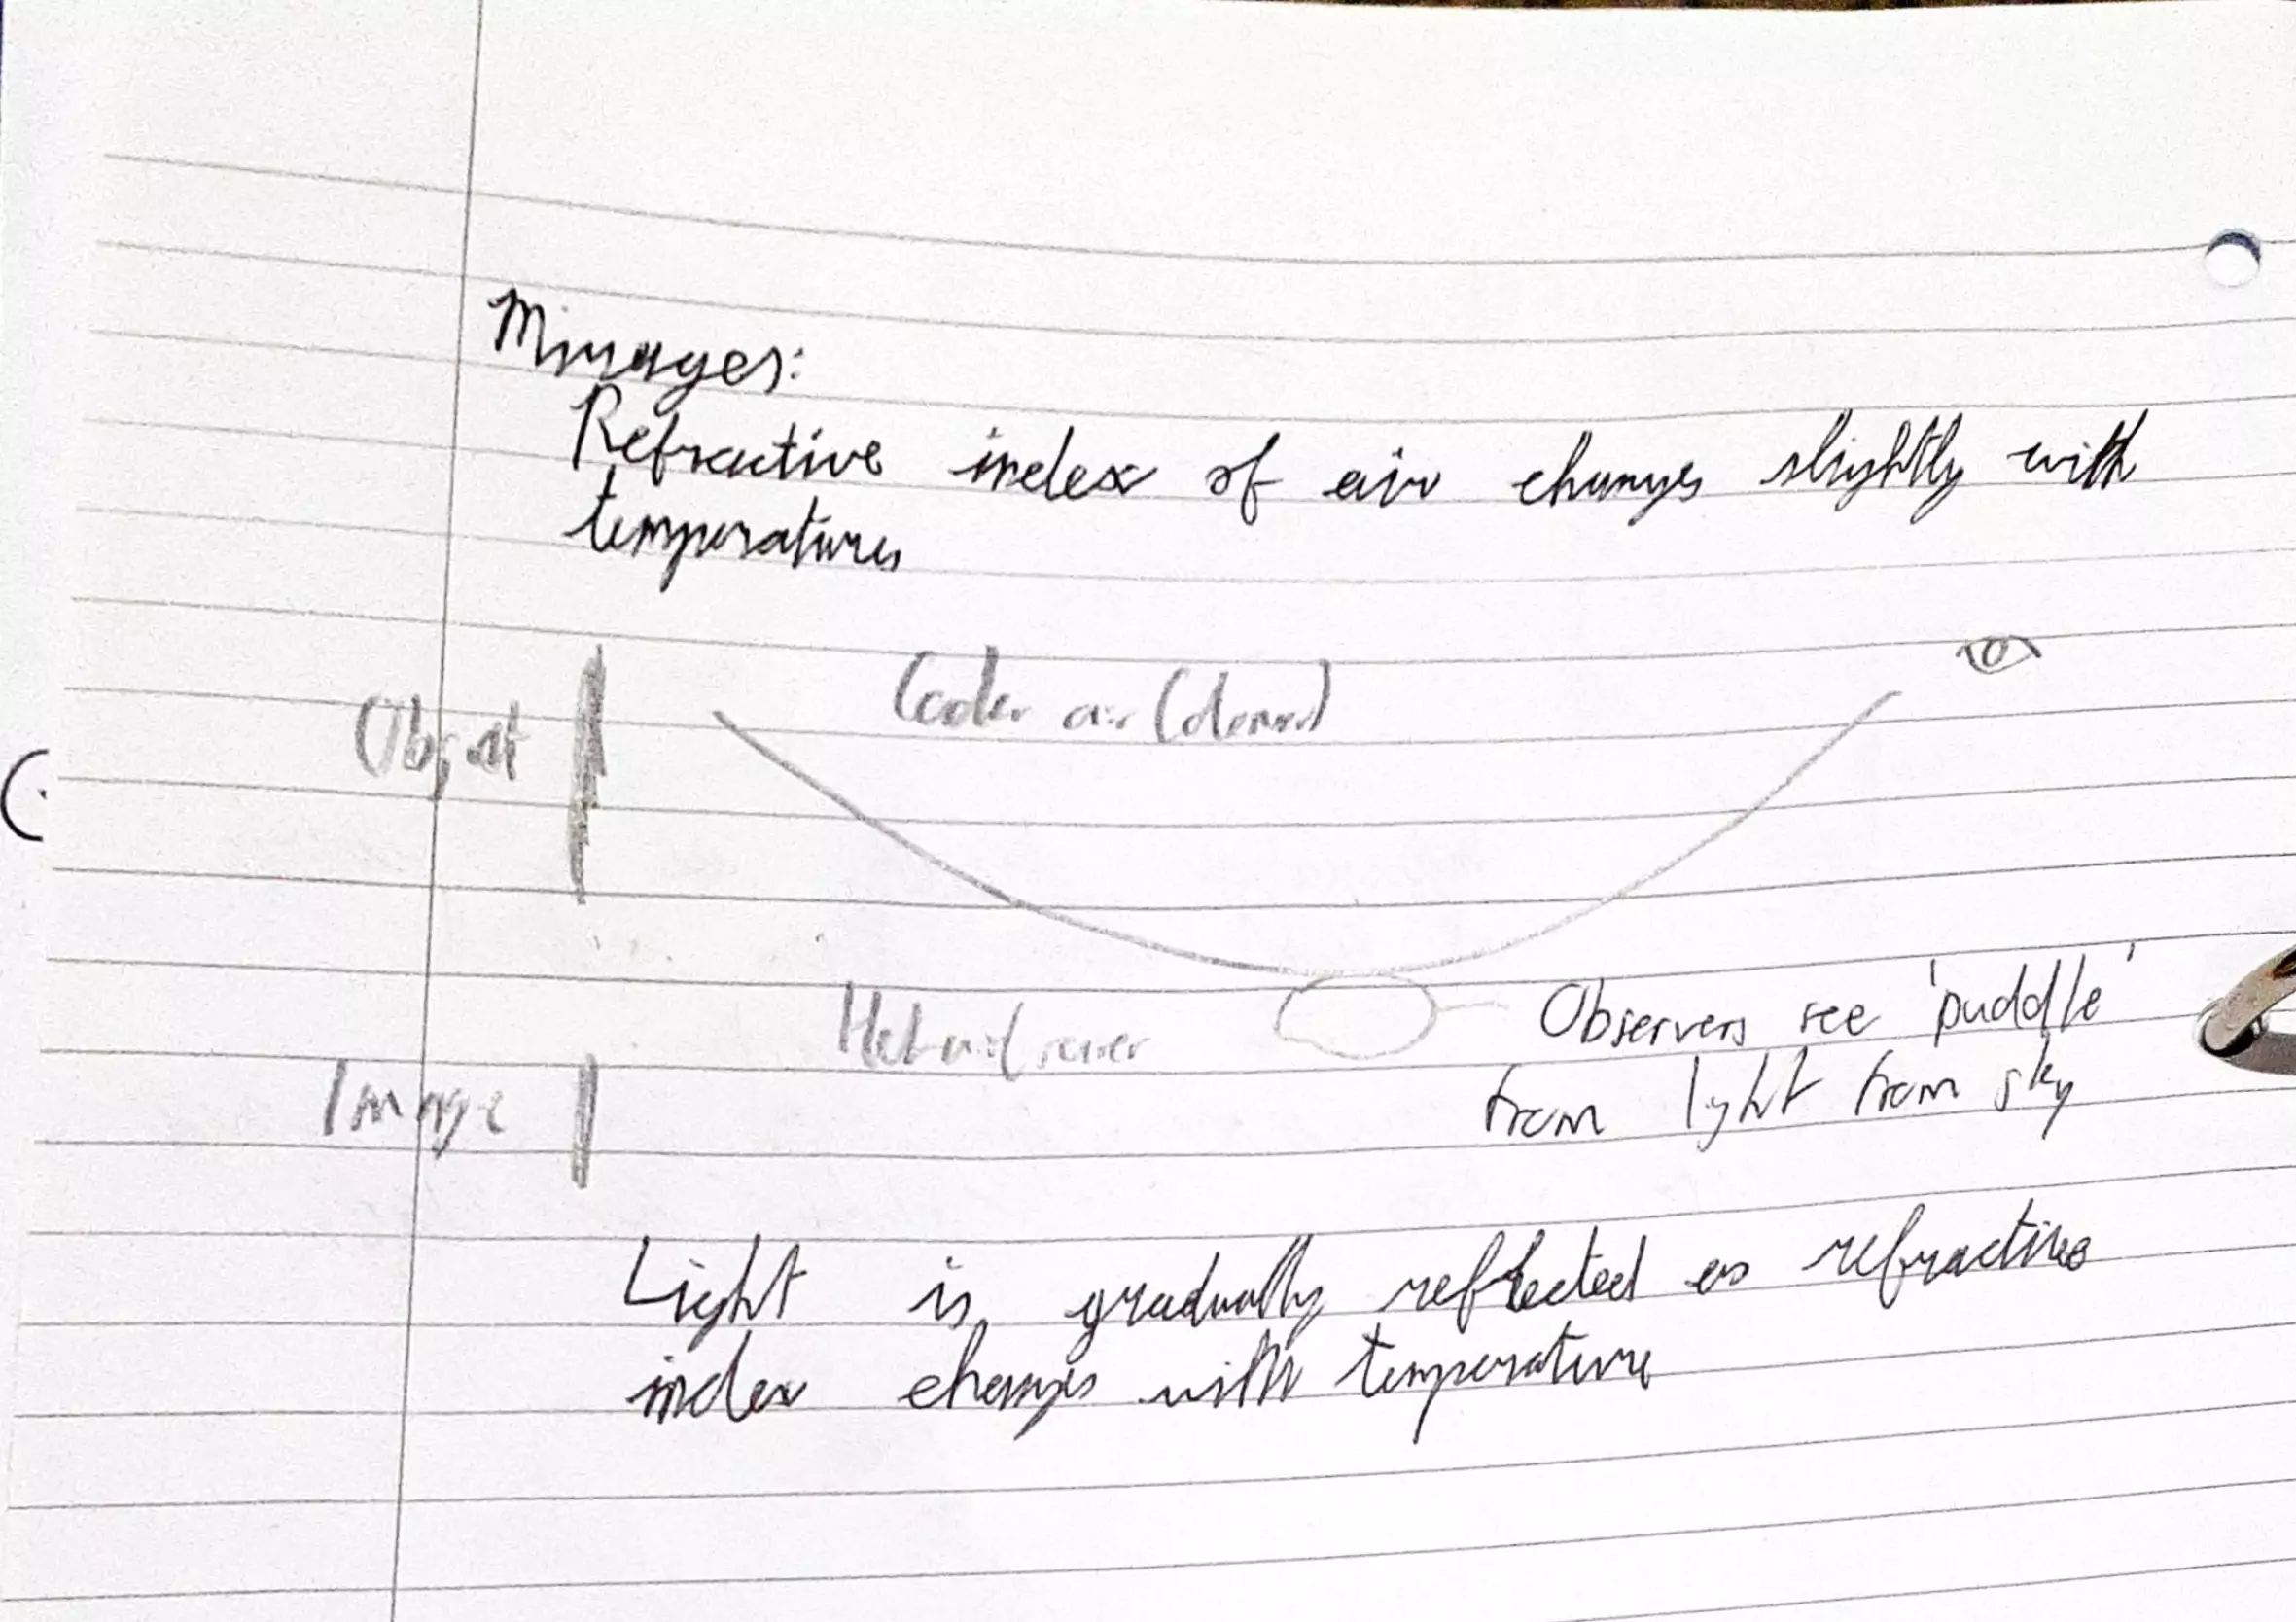 Mirages:
Refractive index of air changes slightly with
temperatures
Cooler air (denser)
Object
Observers see 'puddle'
Hot air (rarer
from light from sky
Image
Light is gradually reflected as refractive
index changes with temperature